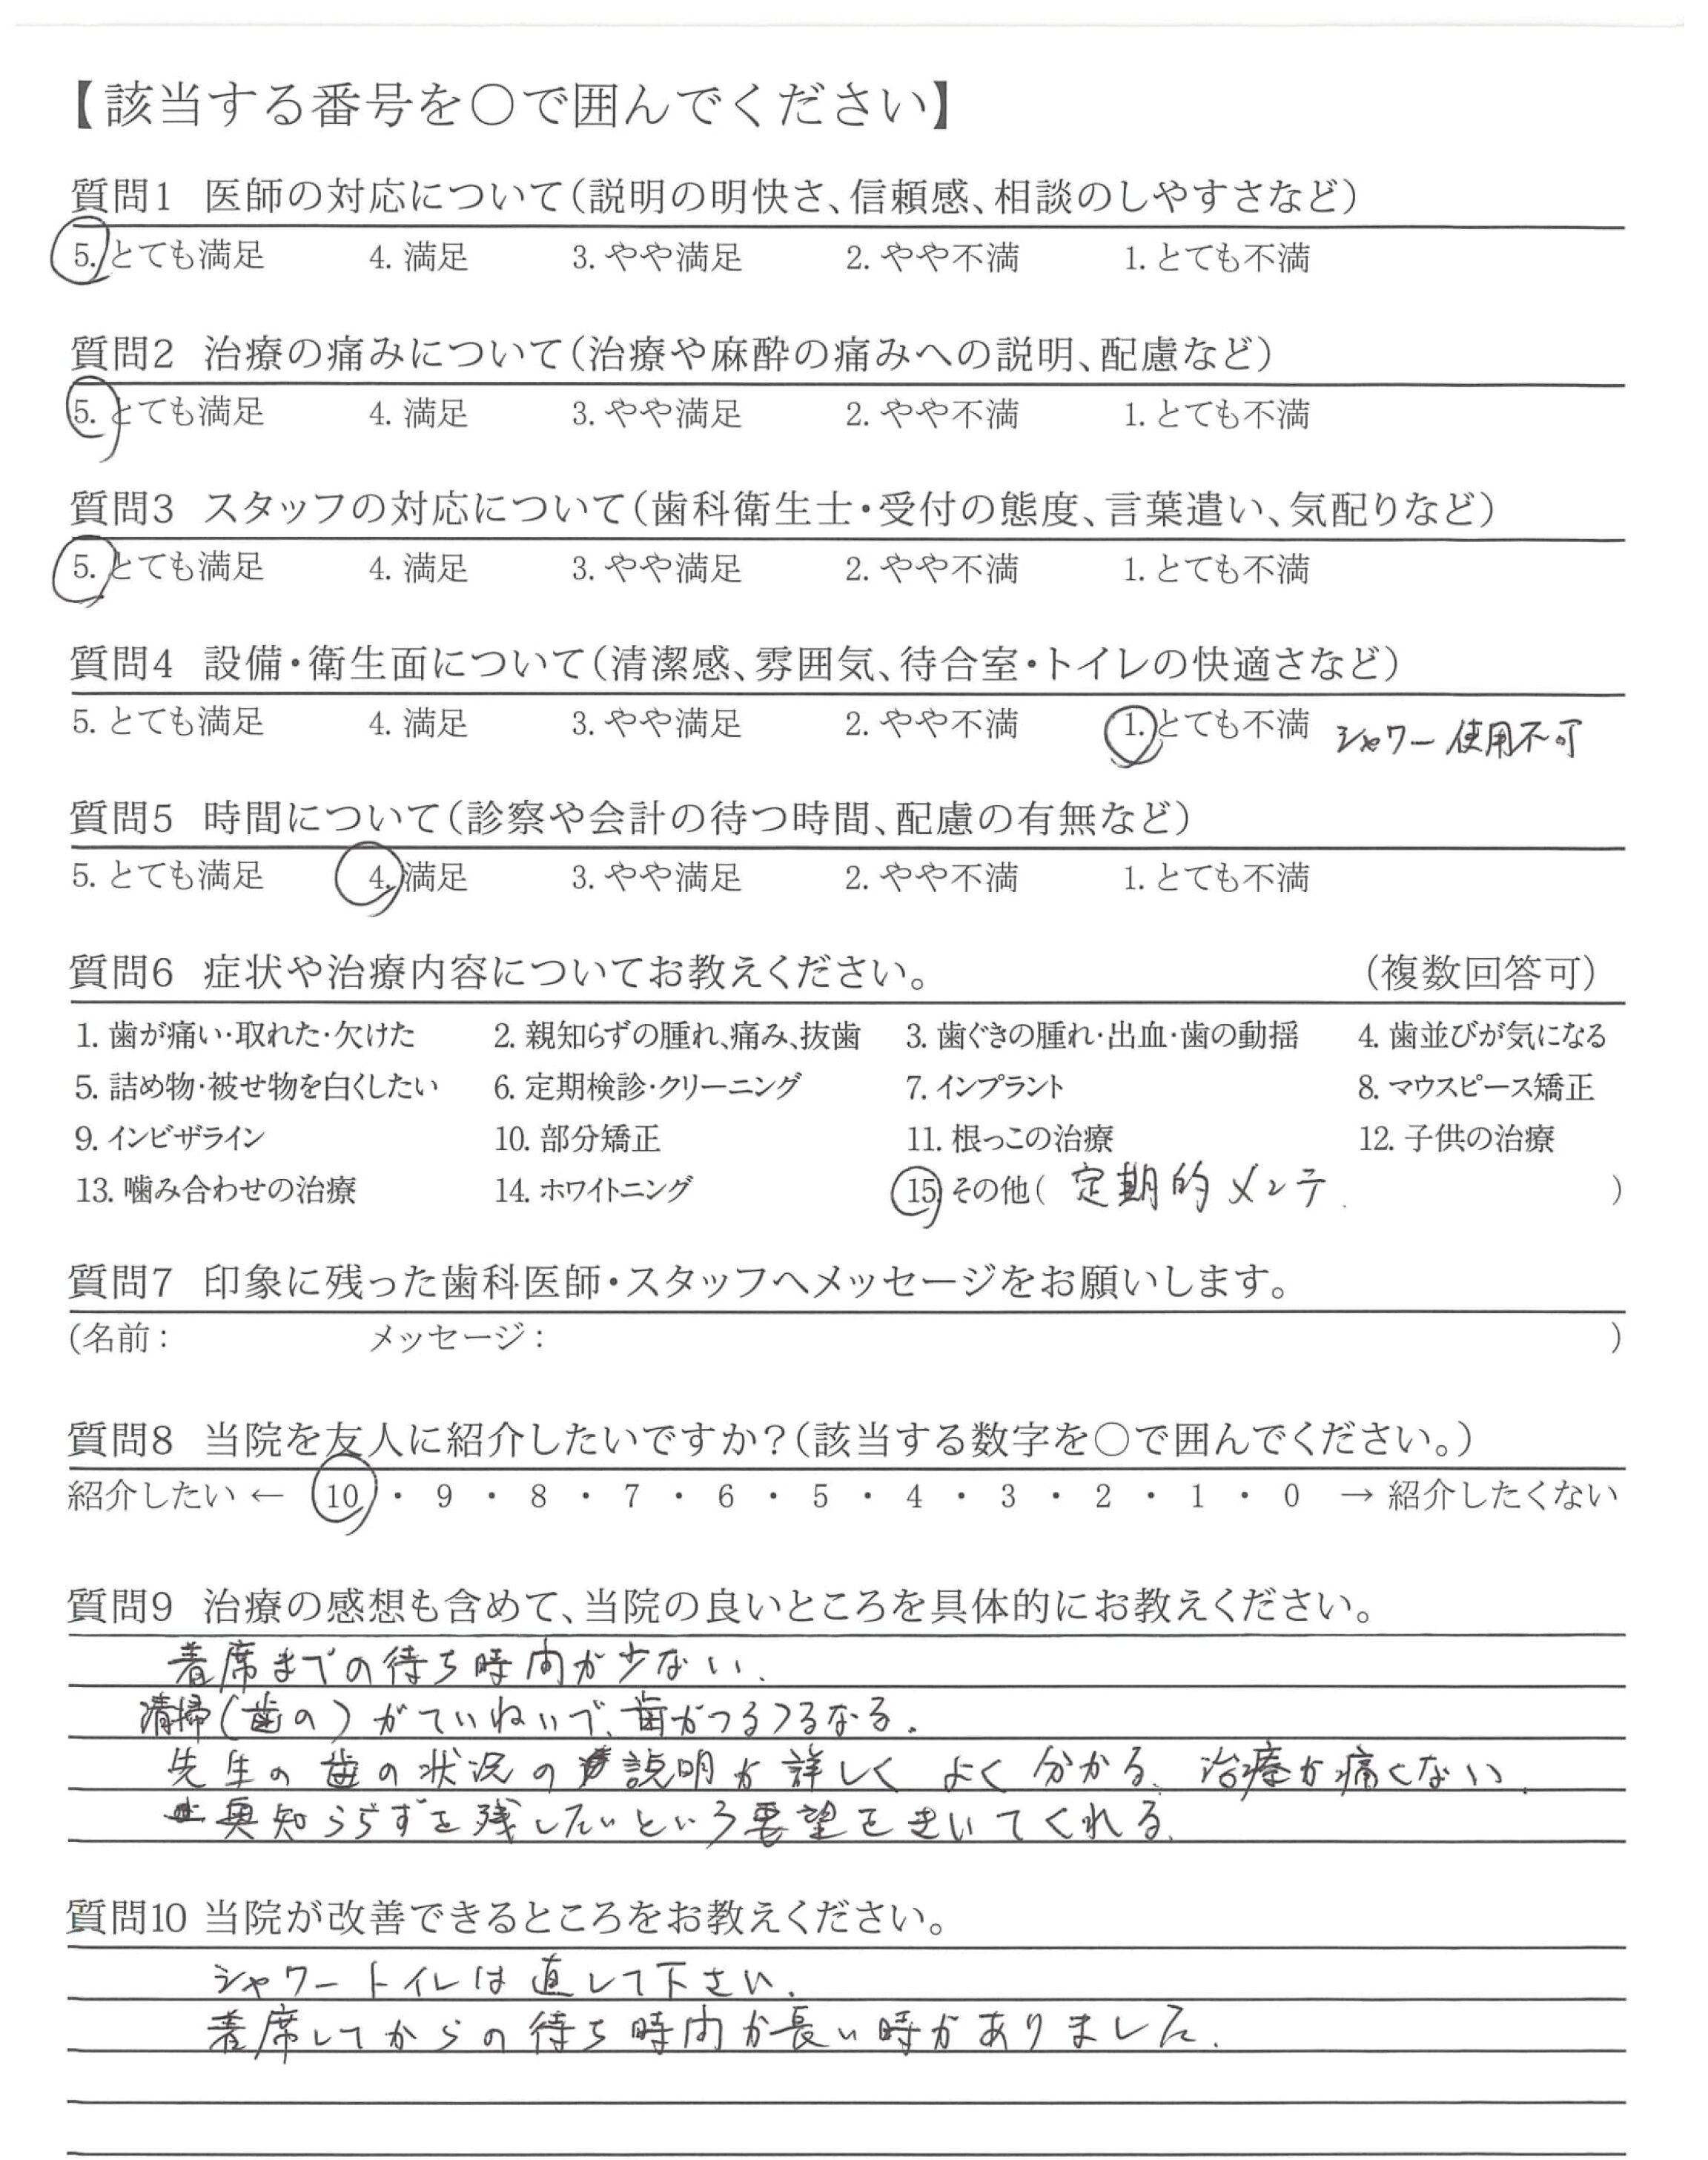 【該当する番号を〇で囲んでください】
質問1 医師の対応について(説明の明快さ、信頼感、相談のしやすさなど)
5. とても満足 4. 満足 3. やや満足 2. やや不満 1. とても不満
質問2 治療の痛みについて(治療や麻酔の痛みへの説明、配慮など)
5. とても満足 4. 満足 3. やや満足 2. やや不満 1. とても不満
質問3 スタッフの対応について(歯科衛生士・受付の態度、言葉遣い、気配りなど)
5. とても満足 4. 満足 3. やや満足 2. やや不満 1. とても不満
質問4 設備・衛生面について(清潔感、雰囲気、待合室・トイレの快適さなど)
5. とても満足 4. 満足 3. やや満足 2. やや不満 1. とても不満 シャワー使用不可
質問5 時間について(診察や会計の待つ時間、配慮の有無など)
5. とても満足 4. 満足 3. やや満足 2. やや不満 1. とても不満
質問6 症状や治療内容についてお教えください。 (複数回答可)
1. 歯が痛い・取れた・欠けた 2. 親知らずの腫れ、痛み、抜歯 3. 歯ぐきの腫れ・出血・歯の動揺 4. 歯並びが気になる
5. 詰め物・被せ物を白くしたい 6. 定期検診・クリーニング 7. インプラント 8. マウスピース矯正
9. インビザライン 10. 部分矯正 11. 根っこの治療 12. 子供の治療
13. 噛み合わせの治療 14. ホワイトニング 15. その他( 定期的メンテ. )
質問7 印象に残った歯科医師・スタッフへメッセージをお願いします。
(名前: メッセージ: )
質問8 当院を友人に紹介したいですか?(該当する数字を〇で囲んでください。)
紹介したい ← 10 ・ 9 ・ 8 ・ 7 ・ 6 ・ 5 ・ 4 ・ 3 ・ 2 ・ 1 ・ 0 → 紹介したくない
質問9 治療の感想も含めて、当院の良いところを具体的にお教えください。
着席までの待ち時間が少ない.
清掃(歯の)がていねいで、歯がつるつるなる.
先生の歯の状況の説明が詳しくよく分かる. 治療が痛くない.
知らずを残したいという要望をきいてくれる.
質問10 当院が改善できるところをお教えください。
シャワートイレは直して下さい.
着席してからの待ち時間が長い時がありました.